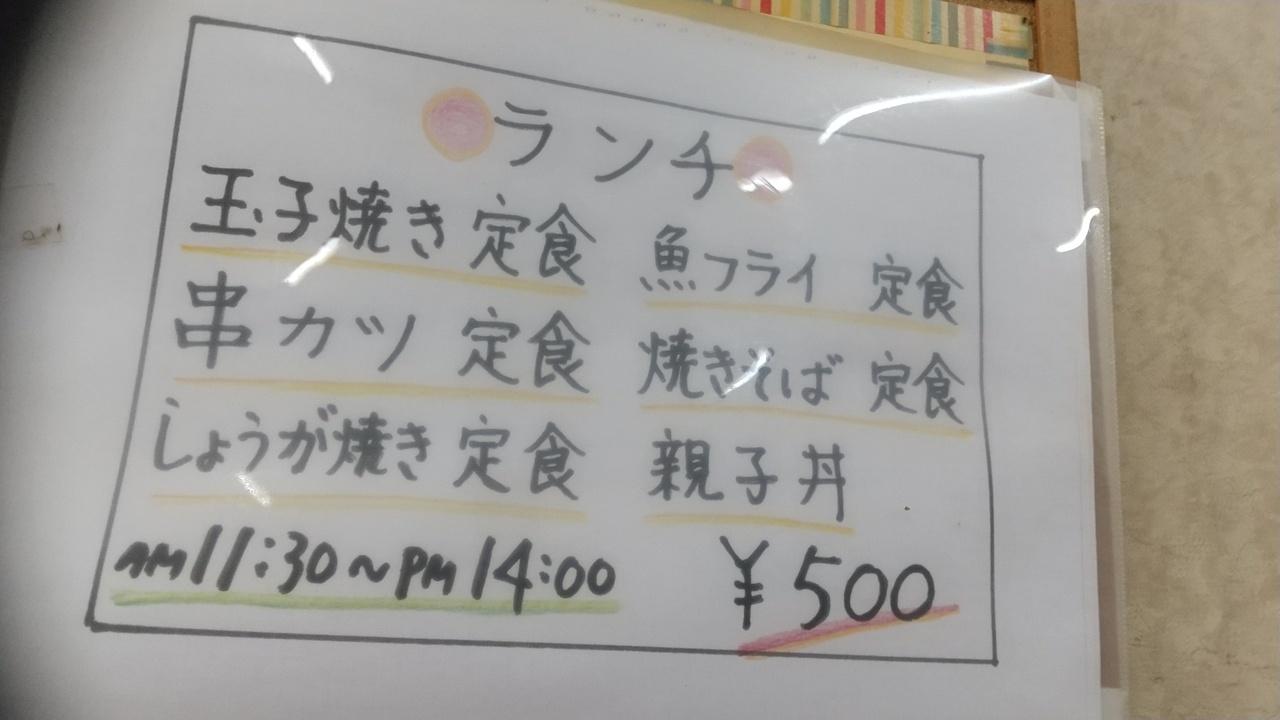 ランチ
玉子焼き定食 魚フライ 定食
串カツ 定食 焼きそば 定食
しょうが焼き 定食 親子丼
AM11:30~PM14:00 ¥500